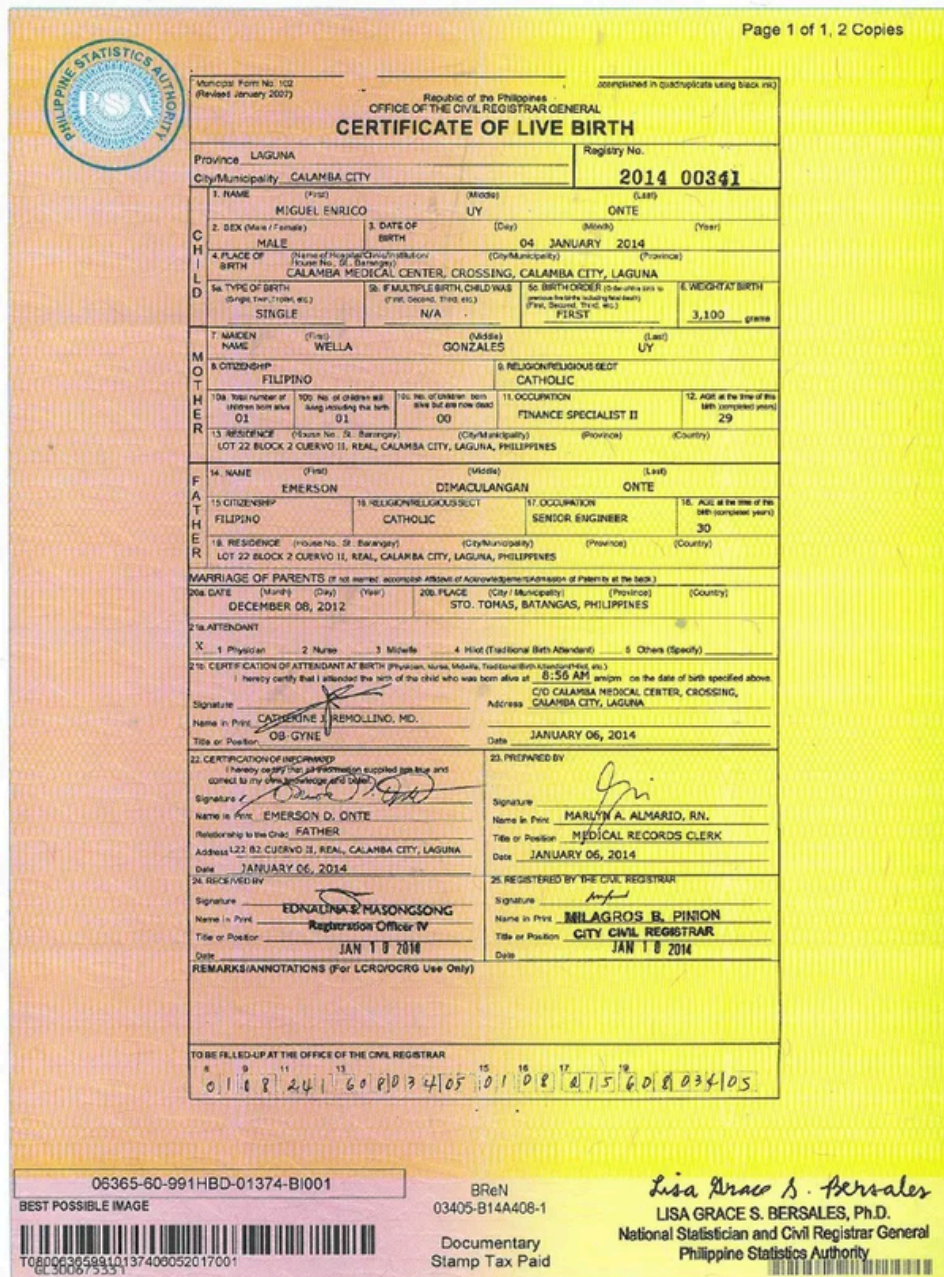 Page 1 of 1, 2 Copies
PHILIPPINE STATISTICS AUTHORITY
PSA
Municipal Form No. 102
(Revised January 2007)
accomplished in quadruplicate using black ink)
Republic of the Philippines
OFFICE OF THE CIVIL REGISTRAR GENERAL
CERTIFICATE OF LIVE BIRTH
Province LAGUNA
Registry No.
City/Municipality CALAMBA CITY
2014 00341
CHILD
1. NAME (First) (Middle) (Last)
MIGUEL ENRICO UY ONTE
2. SEX (Male / Female) 3. DATE OF BIRTH (Day) (Month) (Year)
MALE 04 JANUARY 2014
4. PLACE OF BIRTH (Name of Hospital/Clinic/Institution/ House No., St., Barangay) (City/Municipality) (Province)
CALAMBA MEDICAL CENTER, CROSSING, CALAMBA CITY, LAGUNA
5a. TYPE OF BIRTH (Single, Twin, Triplet, etc.) 5b. IF MULTIPLE BIRTH, CHILD WAS (First, Second, Third, etc.) 5c. BIRTH ORDER (First, Second, Third, etc.) 6. WEIGHT AT BIRTH
SINGLE N/A FIRST 3,100 grams
MOTHER
7. MAIDEN NAME (First) (Middle) (Last)
WELLA GONZALES UY
8. CITIZENSHIP 9. RELIGION/RELIGIOUS SECT
FILIPINO CATHOLIC
10a. Total number of children born alive 10b. No. of children still living including this birth 10c. No. of children born alive but are now dead 11. OCCUPATION 12. AGE at the time of this birth (completed years)
01 01 00 FINANCE SPECIALIST II 29
13. RESIDENCE (House No., St., Barangay) (City/Municipality) (Province) (Country)
LOT 22 BLOCK 2 CUERVO II, REAL, CALAMBA CITY, LAGUNA, PHILIPPINES
FATHER
14. NAME (First) (Middle) (Last)
EMERSON DIMACULANGAN ONTE
15 CITIZENSHIP 16. RELIGION/RELIGIOUS SECT 17. OCCUPATION 18. AGE at the time of this birth (completed years)
FILIPINO CATHOLIC SENIOR ENGINEER 30
19. RESIDENCE (House No., St., Barangay) (City/Municipality) (Province) (Country)
LOT 22 BLOCK 2 CUERVO II, REAL, CALAMBA CITY, LAGUNA, PHILIPPINES
MARRIAGE OF PARENTS (If not married, accomplish Affidavit of Acknowledgement/Admission of Paternity at the back.)
20a. DATE (Month) (Day) (Year) 20b. PLACE (City / Municipality) (Province) (Country)
DECEMBER 08, 2012 STO. TOMAS, BATANGAS, PHILIPPINES
21a. ATTENDANT
X 1 Physician 2 Nurse 3 Midwife 4 Hilot (Traditional Birth Attendant) 5 Others (Specify)
21b. CERTIFICATION OF ATTENDANT AT BIRTH (Physician, Nurse, Midwife, Traditional Birth Attendant/Hilot, etc.)
I hereby certify that I attended the birth of the child who was born alive at 8:56 AM am/pm on the date of birth specified above.
Signature Address C/O CALAMBA MEDICAL CENTER, CROSSING, CALAMBA CITY, LAGUNA
Name in Print CATHERINE J. REMOLLINO, MD.
Title or Position OB-GYNE Date JANUARY 06, 2014
22. CERTIFICATION OF INFORMANT
I hereby certify that all information supplied are true and
correct to my own knowledge and belief.
Signature
Name in Print EMERSON D. ONTE
Relationship to the Child FATHER
Address L22 B2 CUERVO II, REAL, CALAMBA CITY, LAGUNA
Date JANUARY 06, 2014
23. PREPARED BY
Signature
Name in Print MARLYN A. ALMARIO, RN.
Title or Position MEDICAL RECORDS CLERK
Date JANUARY 06, 2014
24. RECEIVED BY
Signature
Name in Print EDNALINA S. MASONGSONG
Title or Position Registration Officer IV
Date JAN 10 2014
25. REGISTERED BY THE CIVIL REGISTRAR
Signature
Name in Print MILAGROS B. PINION
Title or Position CITY CIVIL REGISTRAR
Date JAN 10 2014
REMARKS/ANNOTATIONS (For LCRO/OCRG Use Only)
TO BE FILLED-UP AT THE OFFICE OF THE CIVIL REGISTRAR
8 9 11 13 15 16 17 19
0 1 0 8 2 4 1 6 0 8 0 3 4 0 5 0 1 0 8 2 1 5 6 0 8 0 3 4 0 5
06365-60-991HBD-01374-BI001
BEST POSSIBLE IMAGE
BReN
03405-B14A408-1
Documentary
Stamp Tax Paid
Lisa Grace S. Bersales
LISA GRACE S. BERSALES, Ph.D.
National Statistician and Civil Registrar General
Philippine Statistics Authority